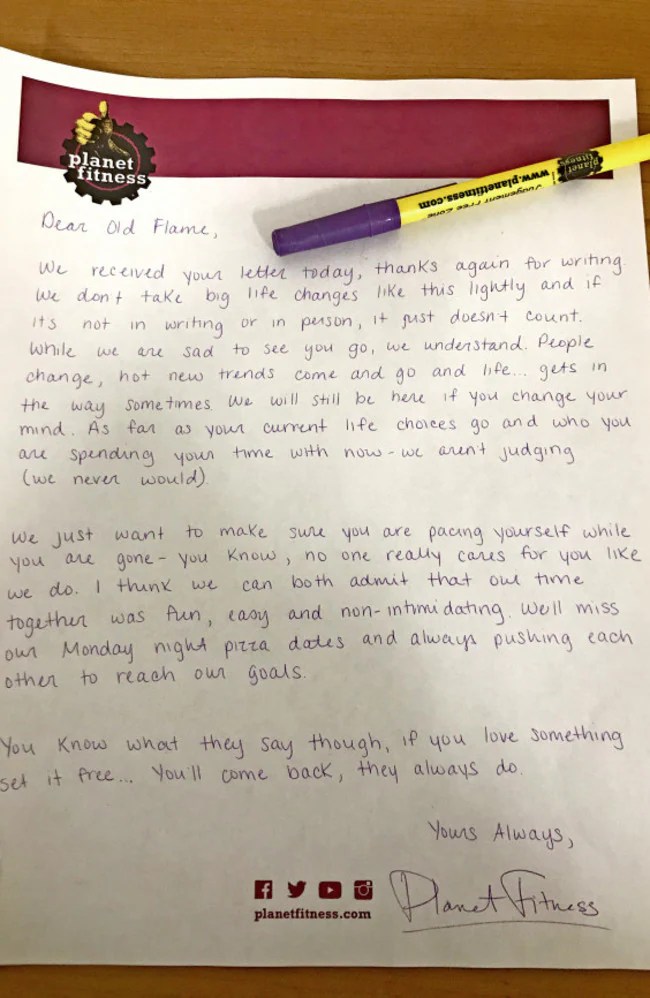 planet
fitness
www.planetfitness.com
Judgement Free Zone
planet
fitness
Dear Old Flame,
We received your letter today, thanks again for writing.
We don't take big life changes like this lightly and if
its not in writing or in person, it just doesn't count.
While we are sad to see you go, we understand. People
change, hot new trends come and go and life... gets in
the way sometimes. We will still be here if you change your
mind. As far as your current life choices go and who you
are spending your time with now - we aren't judging
(we never would).
We just want to make sure you are pacing yourself while
you are gone - you know, no one really cares for you like
we do. I think we can both admit that our time
together was fun, easy and non-intimidating. We'll miss
our Monday night pizza dates and always pushing each
other to reach our goals.
You know what they say though, if you love something
set it free... You'll come back, they always do.
Yours Always,
Planet Fitness
planetfitness.com